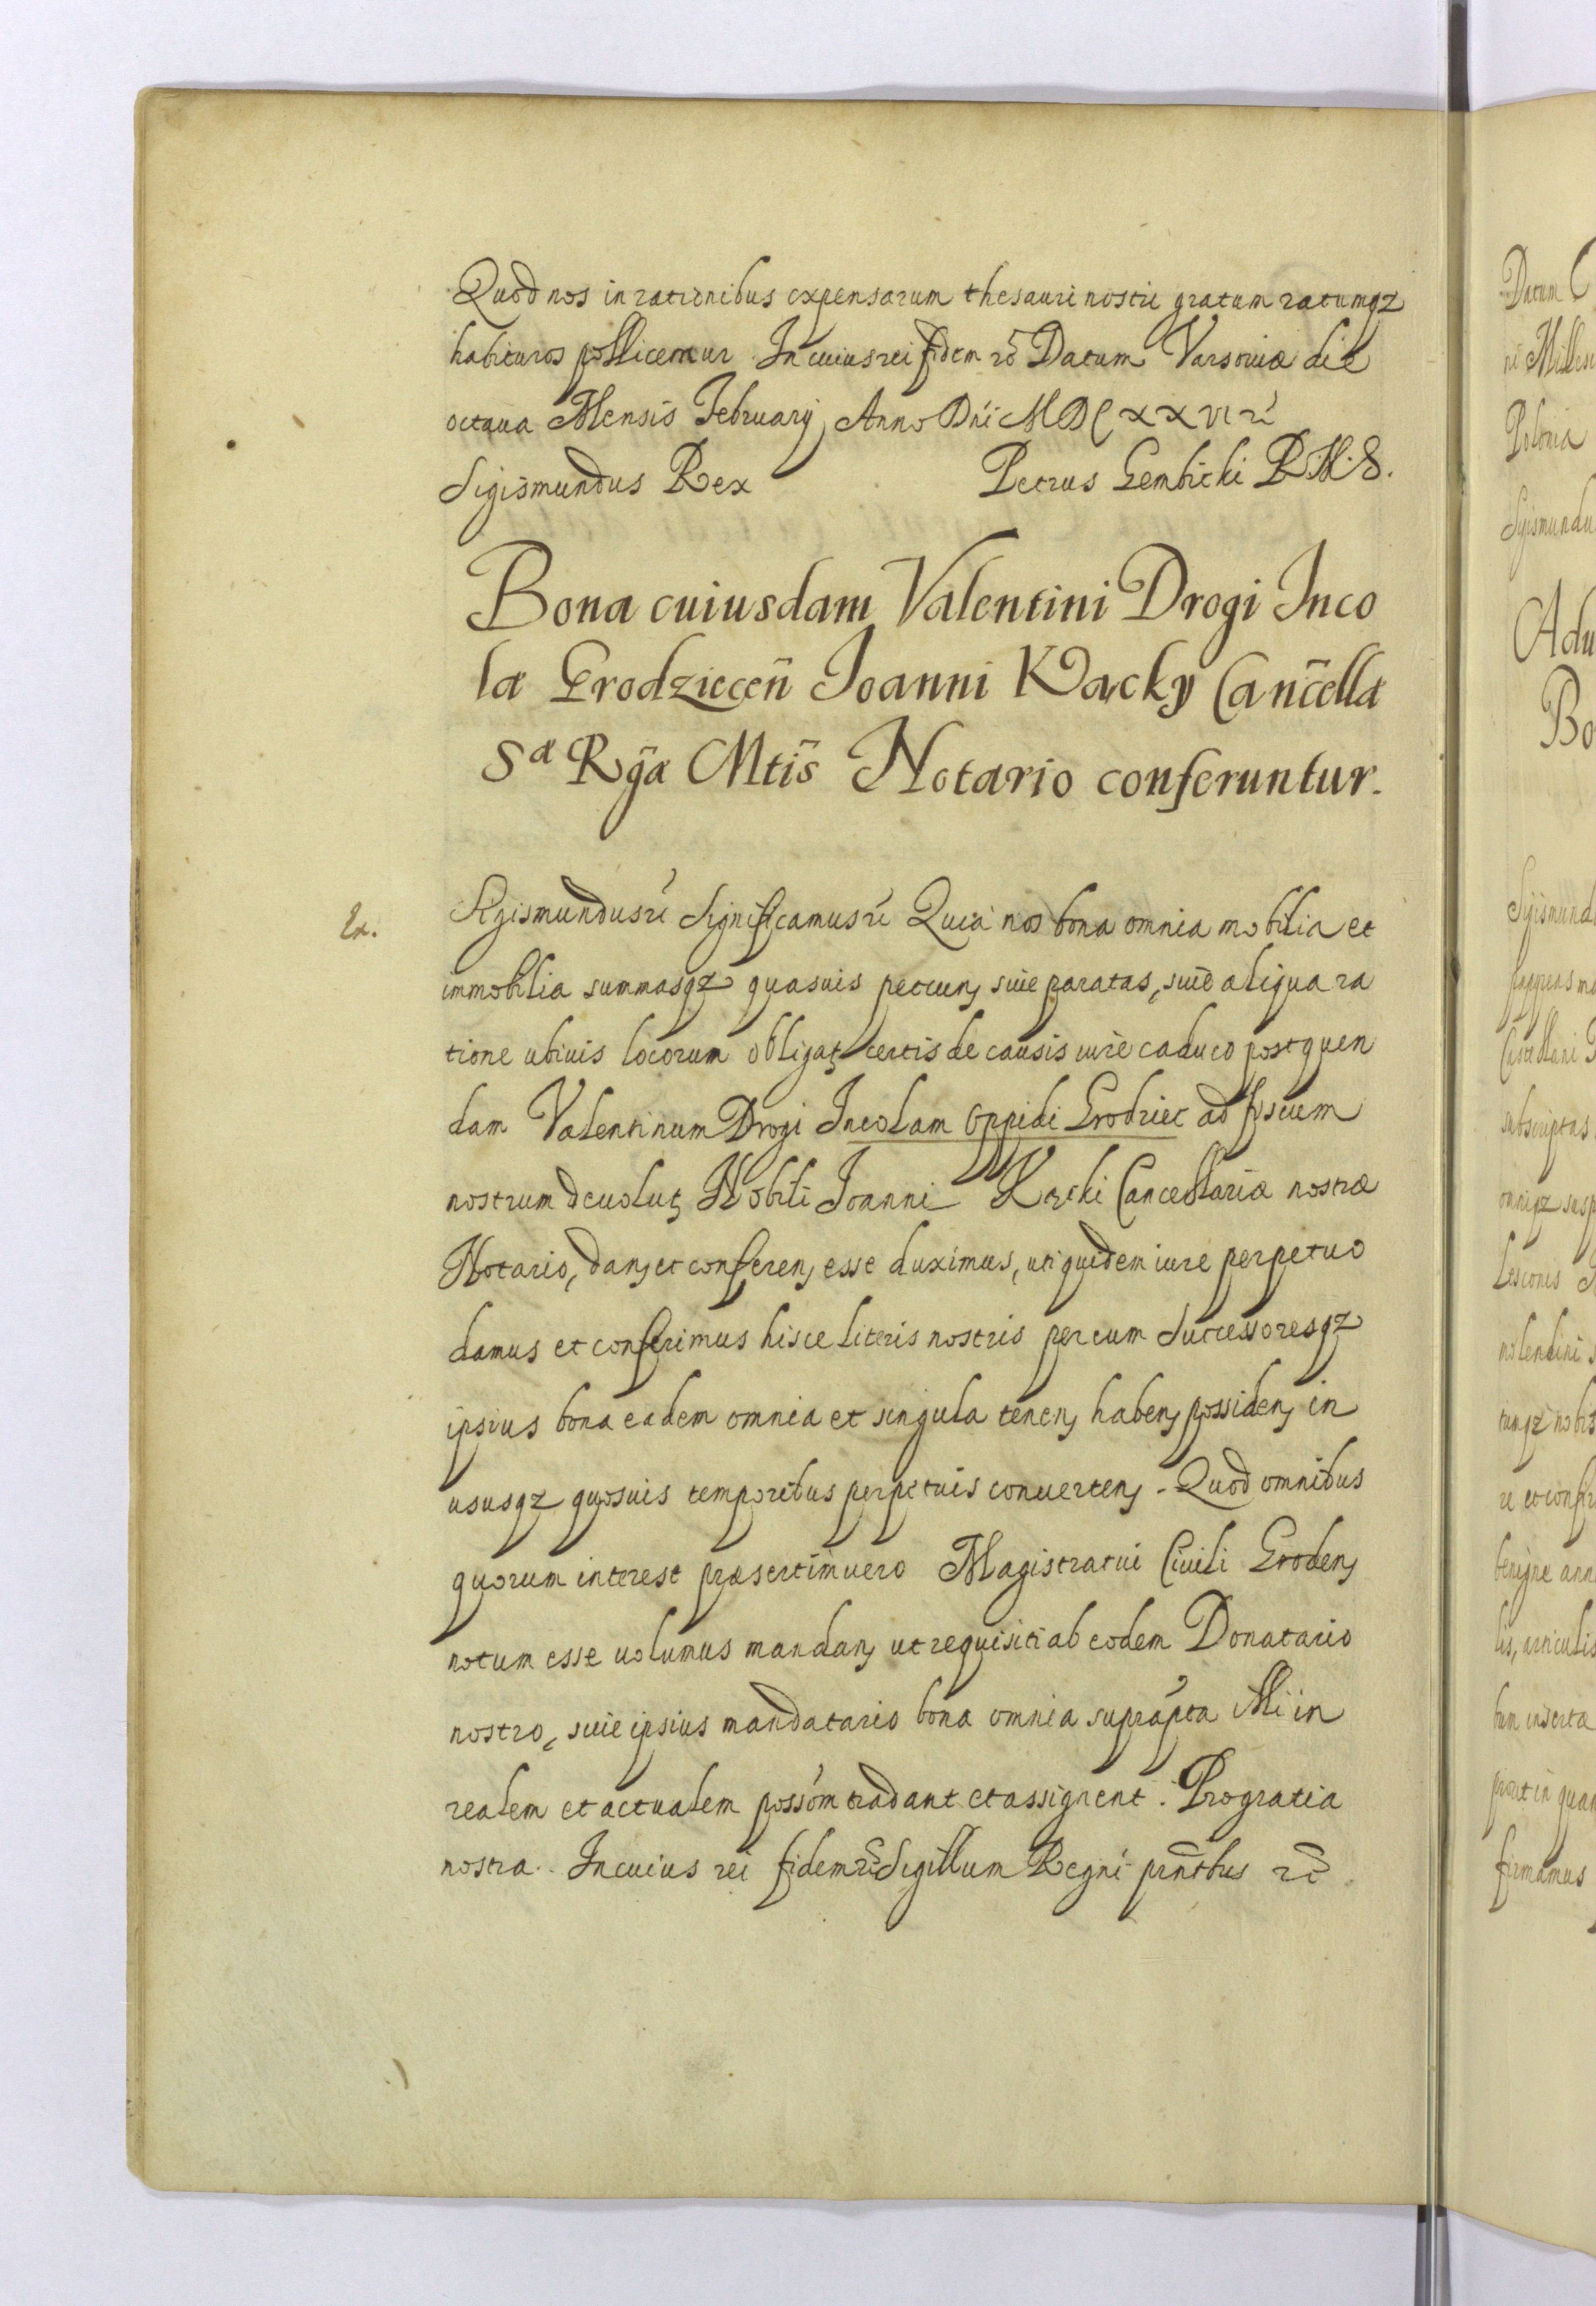 Quod nos in rationibus expensarum thesauri nostri gratum ratumqz
habituros pollicemur. In cuius rei fidem rc̄ Datum Varsoviæ die
octava Mensis February Anno Dńi MDCXXVI rć
Sigismundus Rex Petrus Gembicki R.M.S.
Bona cuiusdam Valentini Drogi Inco
læ Grodziecen̄ Joanni Kącky Can̄cellæ
Sæ Rḡæ Mtīs Notario conferuntur.
Ex. Sigismundus rć Significamus rć Quia nos bona omnia mobilia et
immobilia summasqz quasuis pecun, siue paratas, siue aliqua ra
tione ubiuis locorum obligat, certis de causis iure caduco post quen
dam Valentinum Drogi Incolam Oppidi Grodziec ad fiscum
nostrum deuolut, Nobili Joanni Kącki Cancellariæ nostræ
Notario, dan, et conferen, esse duximus, uti quidem iure perpetuo
damus et conferimus hisce literis nostris per eum Successoresqz
ipsius bona eadem omnia et singula tenen, haben, possiden, in
ususqz quosuis temporibus perpetuis conuerten,. Quod omnibus
quorum interest præsertim uero Magistratui Ciuili Groden,
notum esse uolumus mandan, ut requisiti ab eodem Donatario
nostro, siue ipsius mandatario bona omnia supráptа illi in
realem et actualem possóm tradant et assignent. Pro gratia
nostra. In cuius rei fidem rc̄ Sigillum Regni prn̄tbus rc̄
Datum
Polonia
Sigismundu
Adu
Bo
subscriptus
Lesconis
molendini
tumqz nobis
benigne ann
lis, articulis
tum inserta
prout in quan
firmamus